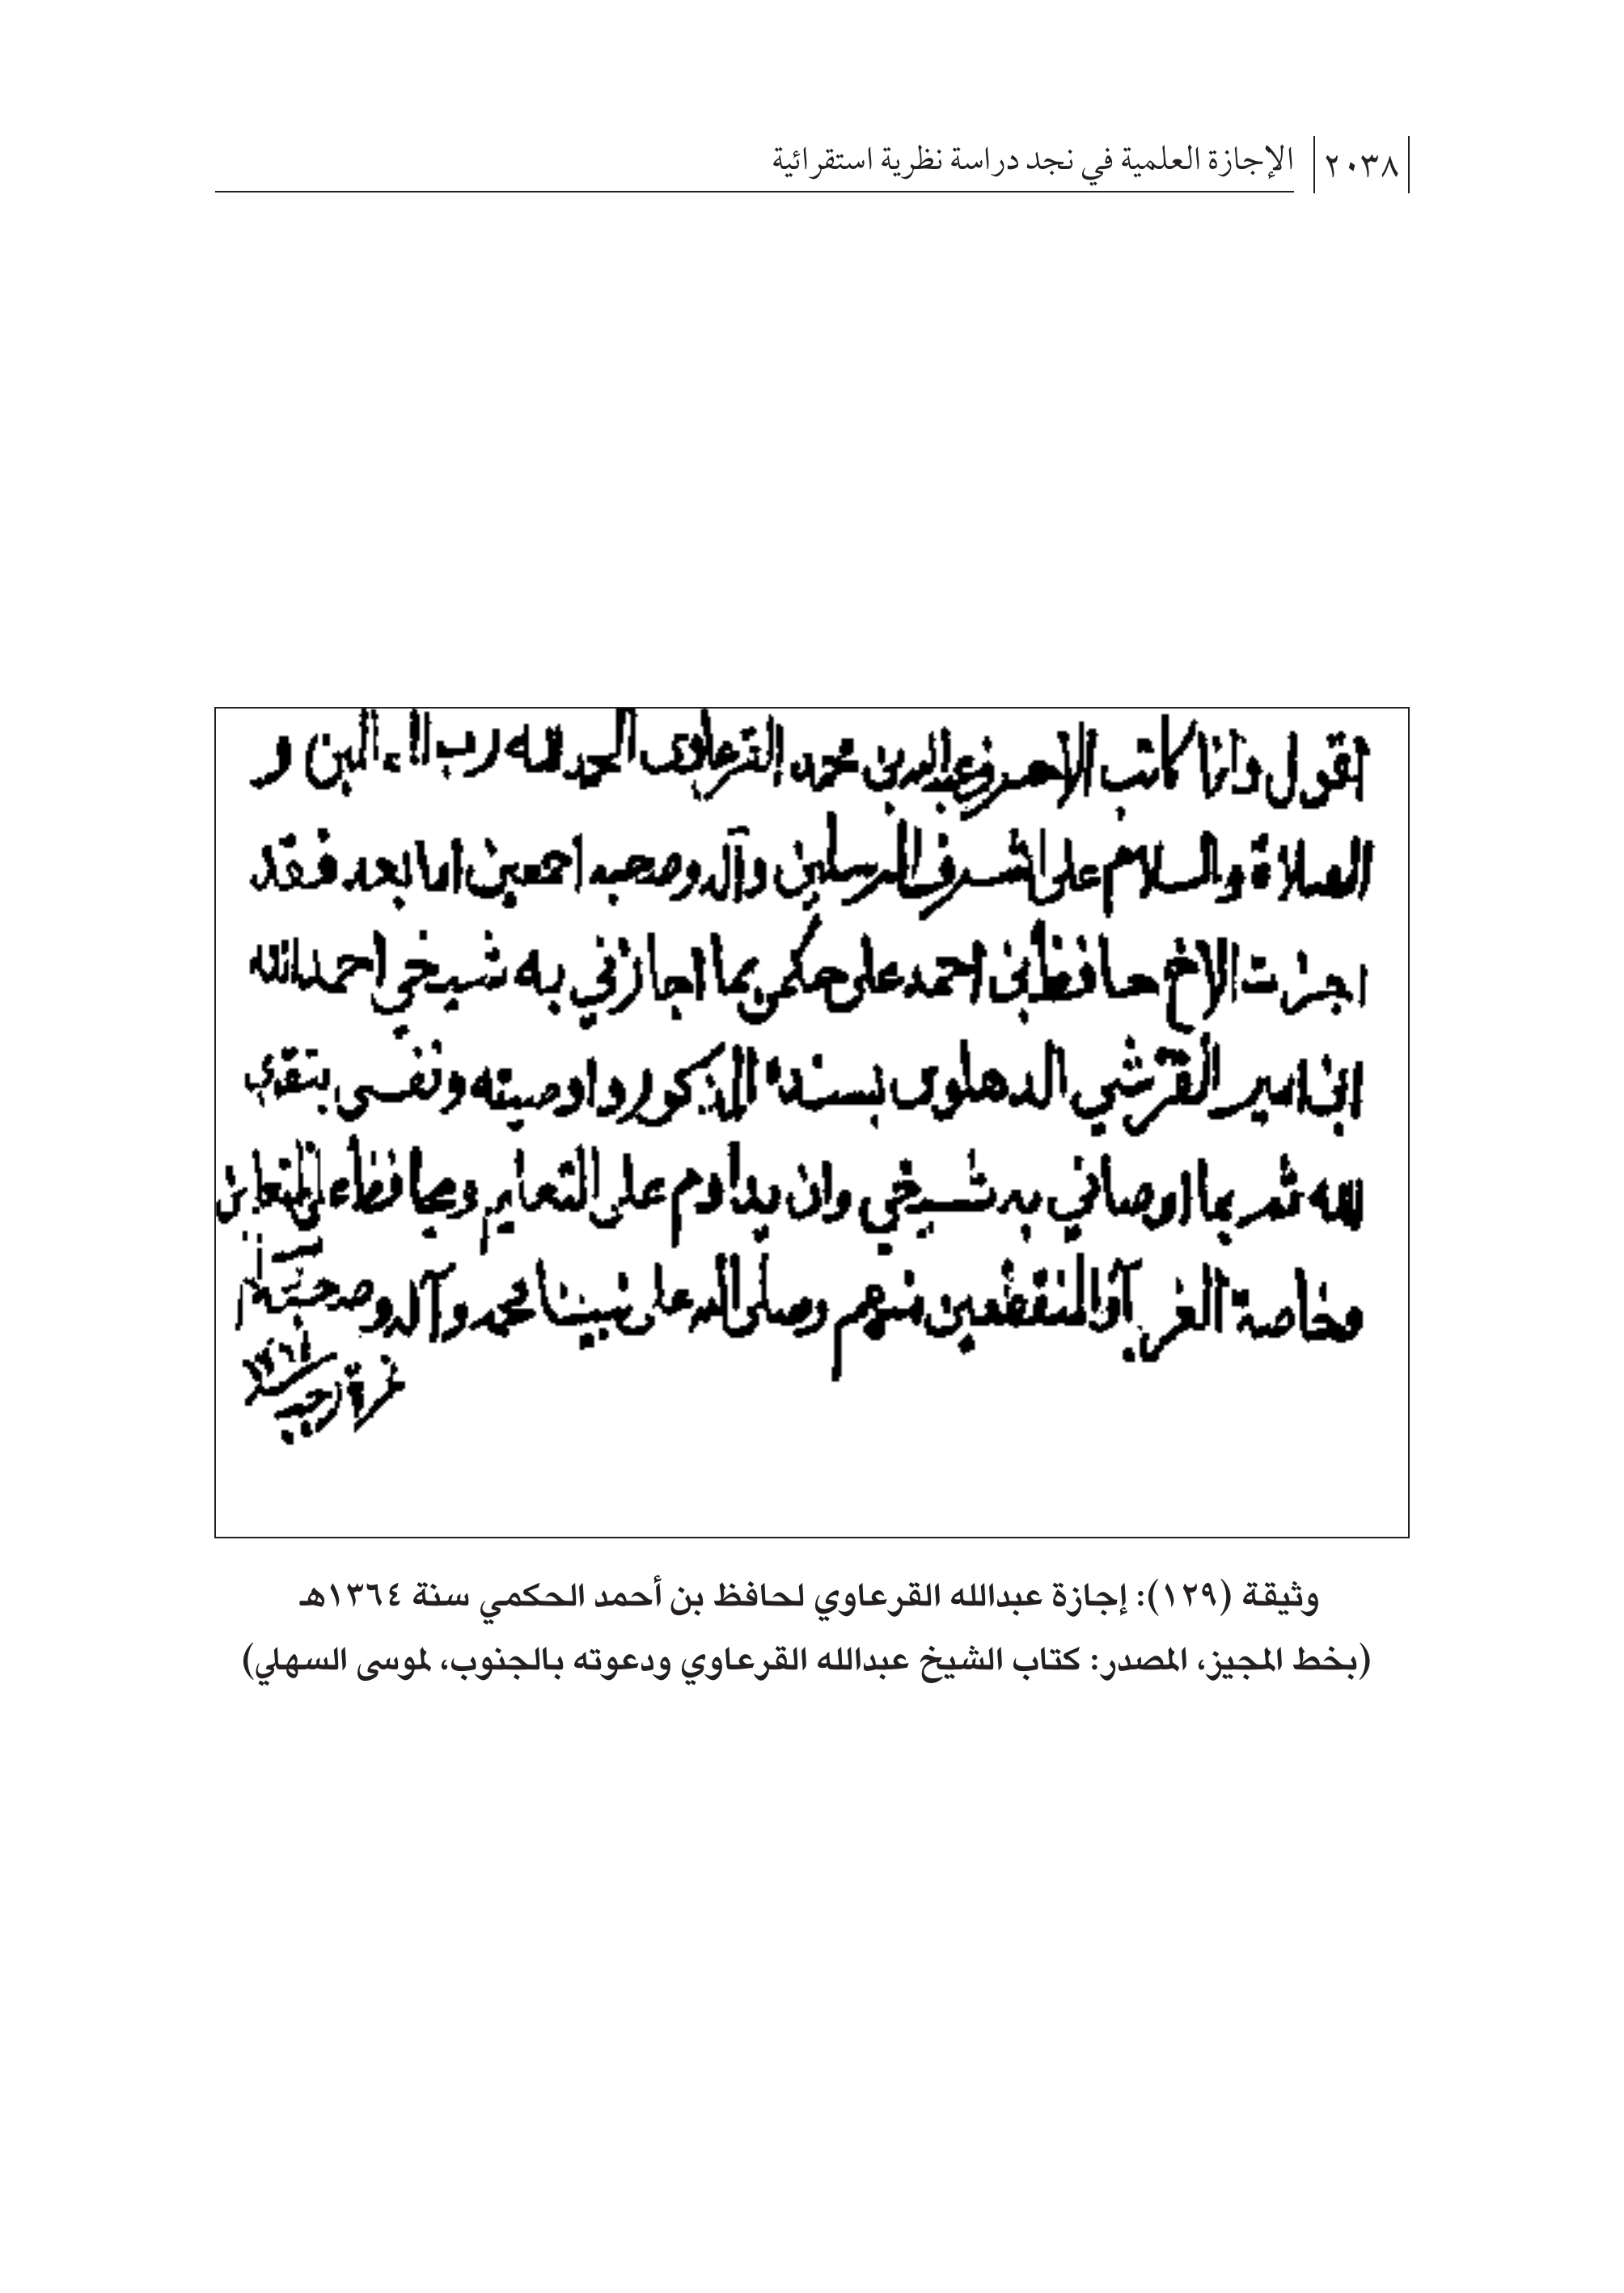 ٢٠٣٨ الإجازة العلمية في نجد دراسة نظرية استقرائية
اقول وانا كاتب الاحرف عبدالله بن محمد القرعاوى الحمد لله رب العالمين و
الصلاة والسلام على اشرف المرسلين وآله وصحبه اجمعين اما بعد فقد
اجزت الاخ حافظ بن احمد على حكمي بما اجازني به شيخي احمد الله
ابن امير القرشي الدهلوى بسنده المذكور واوصيته ونفسي بتقوى
الله ثم بما اوصاني به شيخي وان يداوم على التعليم
وخاصة القرآن منهم وصلى الله على نبينا محمد وآله وصحبه
وثيقة (١٢٩): إجازة عبدالله القرعاوي لحافظ بن أحمد الحكمي سنة ١٣٦٤هـ
(بخط المجيز، المصدر: كتاب الشيخ عبدالله القرعاوي ودعوته بالجنوب، لموسى السهلي)